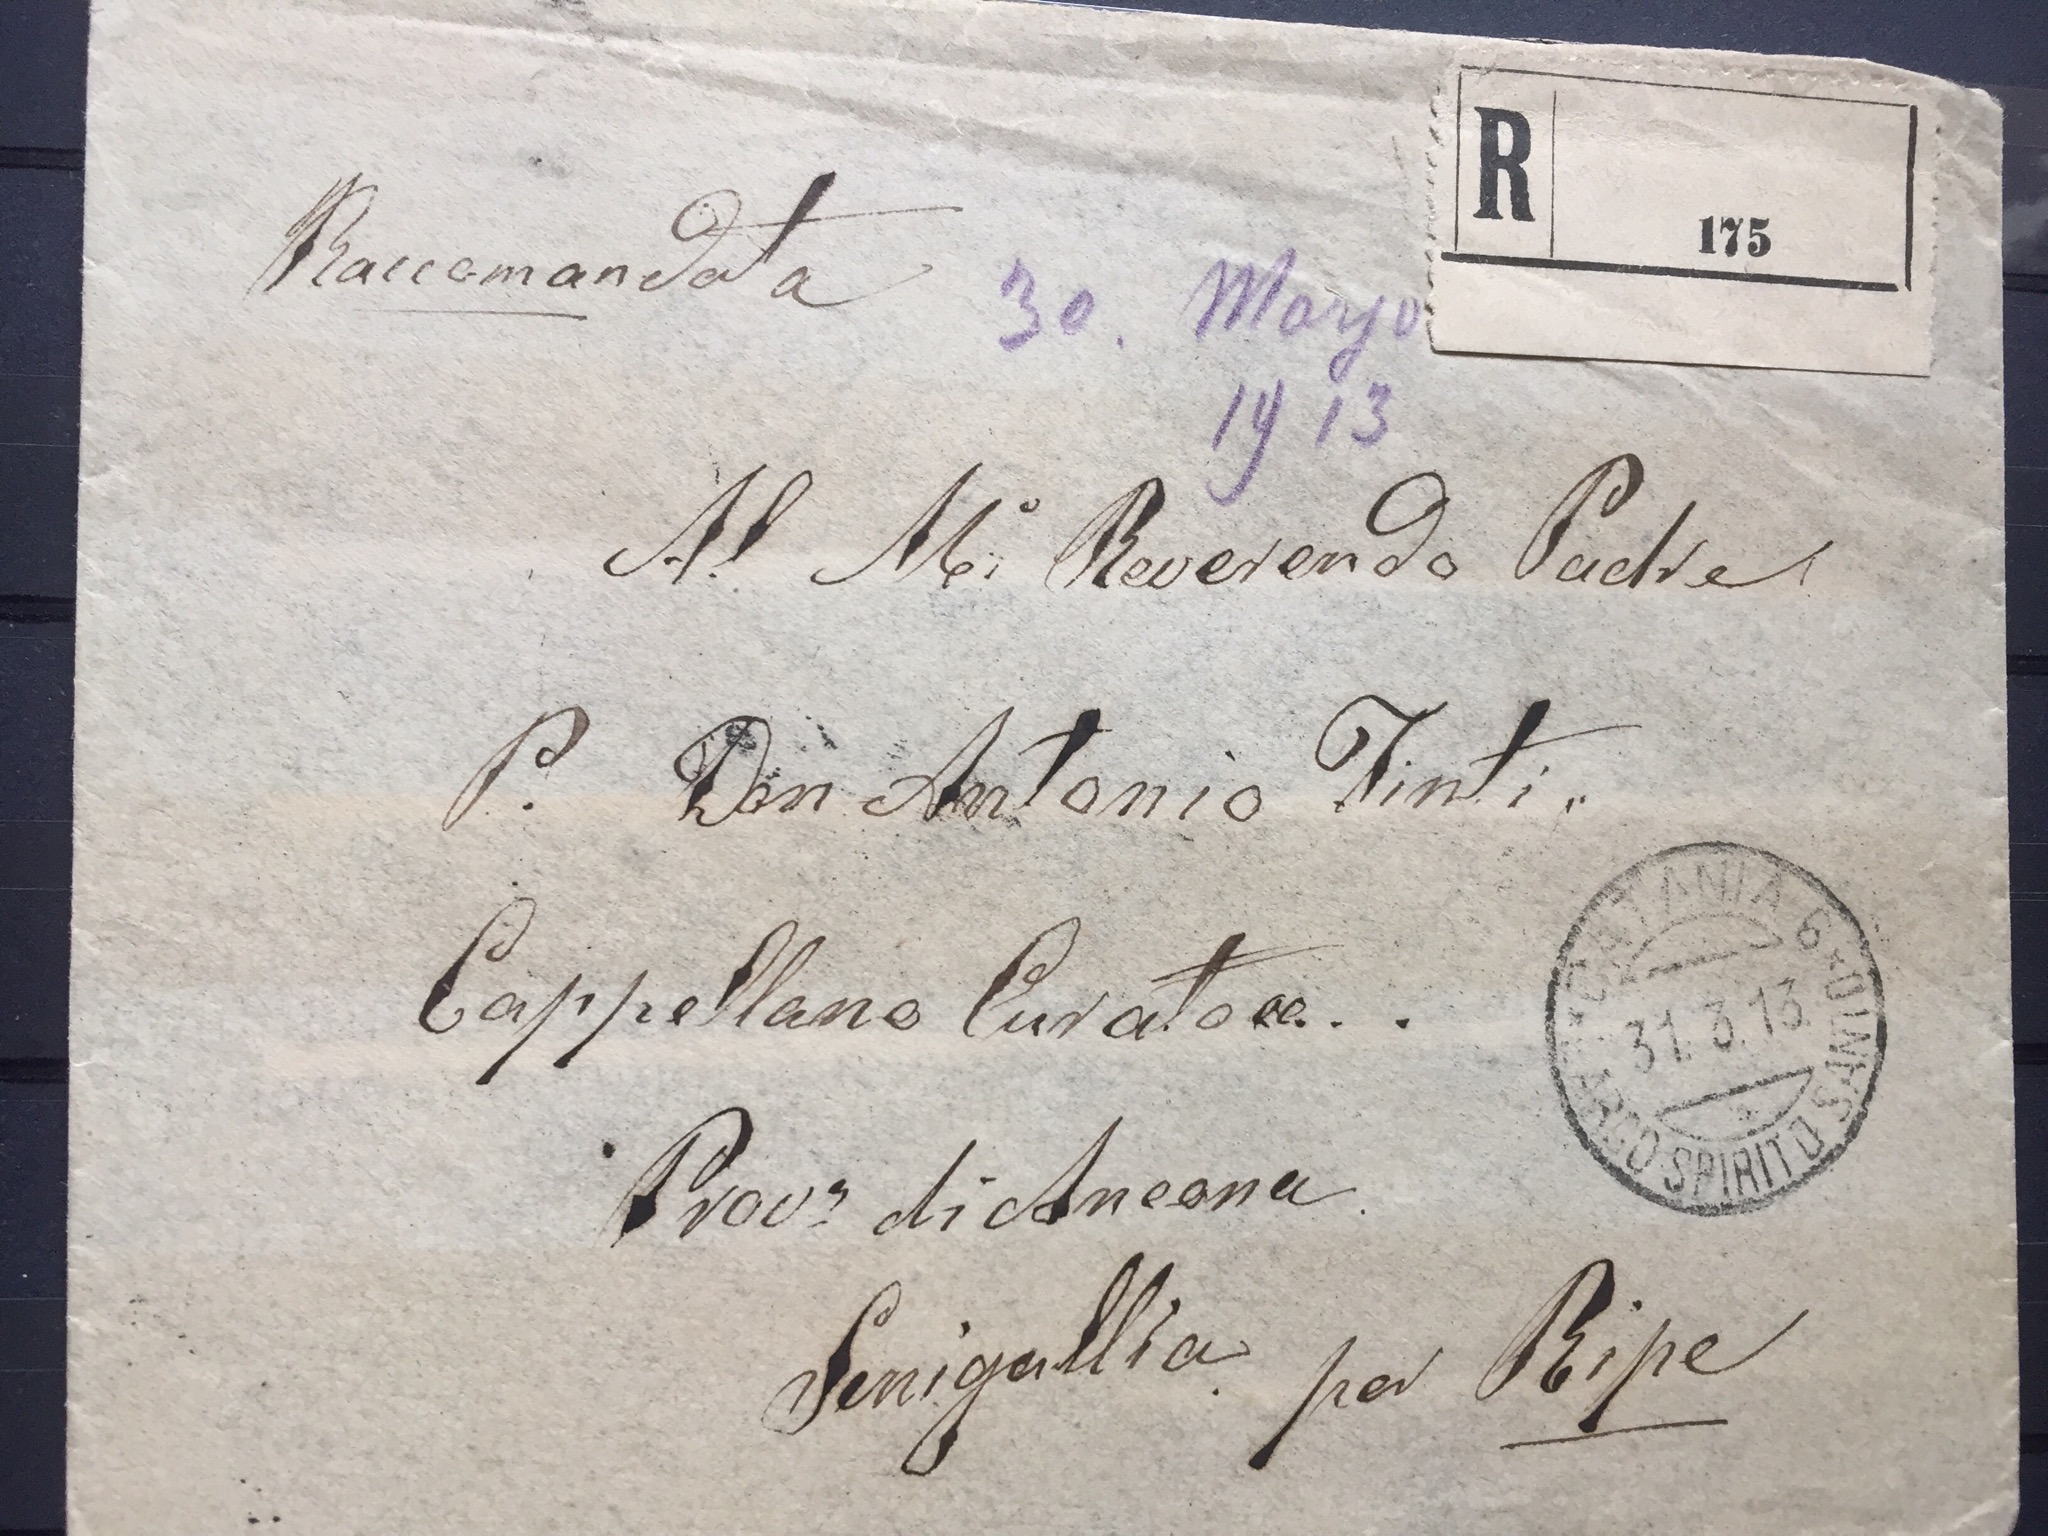 R
175
Raccomandata
30. Marzo
1913
Al M.º Reverendo Padre
P. Don Antonio Tinti
Cappellano Curato
Prov.ª di Ancona
Senigallia per Ripe
CATANIA 6 * D'INES
31.3.13
ARCO SPIRITO S